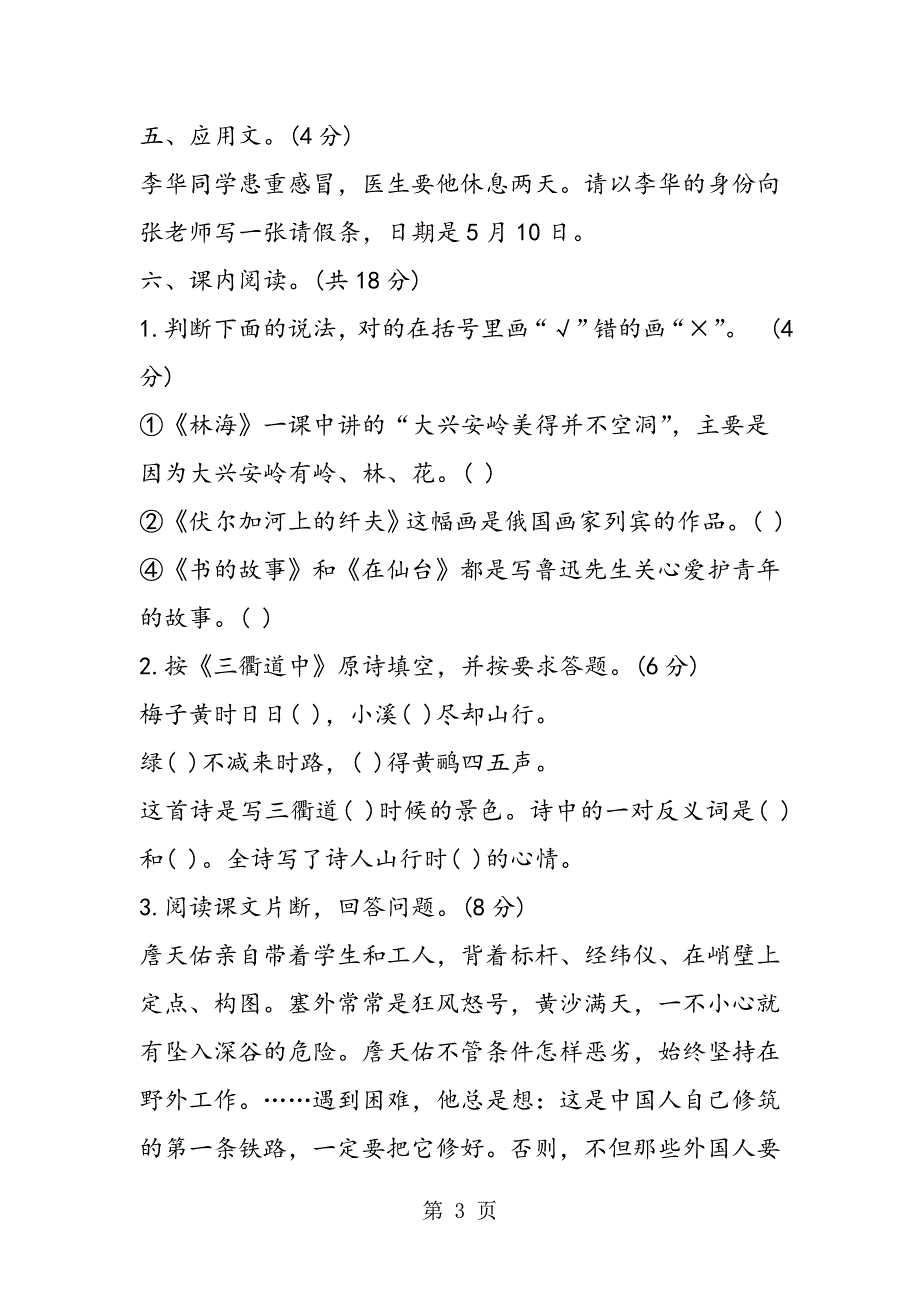 五、应用文。(4分)
李华同学患重感冒，医生要他休息两天。请以李华的身份向
张老师写一张请假条，日期是5月10日。
六、课内阅读。(共18分)
1.判断下面的说法，对的在括号里画“√”错的画“×”。 (4
分)
①《林海》一课中讲的“大兴安岭美得并不空洞”，主要是
因为大兴安岭有岭、林、花。( )
②《伏尔加河上的纤夫》这幅画是俄国画家列宾的作品。( )
④《书的故事》和《在仙台》都是写鲁迅先生关心爱护青年
的故事。( )
2.按《三衢道中》原诗填空，并按要求答题。(6分)
梅子黄时日日( )，小溪( )尽却山行。
绿( )不减来时路，( )得黄鹂四五声。
这首诗是写三衢道( )时候的景色。诗中的一对反义词是( )
和( )。全诗写了诗人山行时( )的心情。
3.阅读课文片断，回答问题。(8分)
詹天佑亲自带着学生和工人，背着标杆、经纬仪、在峭壁上
定点、构图。塞外常常是狂风怒号，黄沙满天，一不小心就
有坠入深谷的危险。詹天佑不管条件怎样恶劣，始终坚持在
野外工作。……遇到困难，他总是想：这是中国人自己修筑
的第一条铁路，一定要把它修好。否则，不但那些外国人要
第 3 页